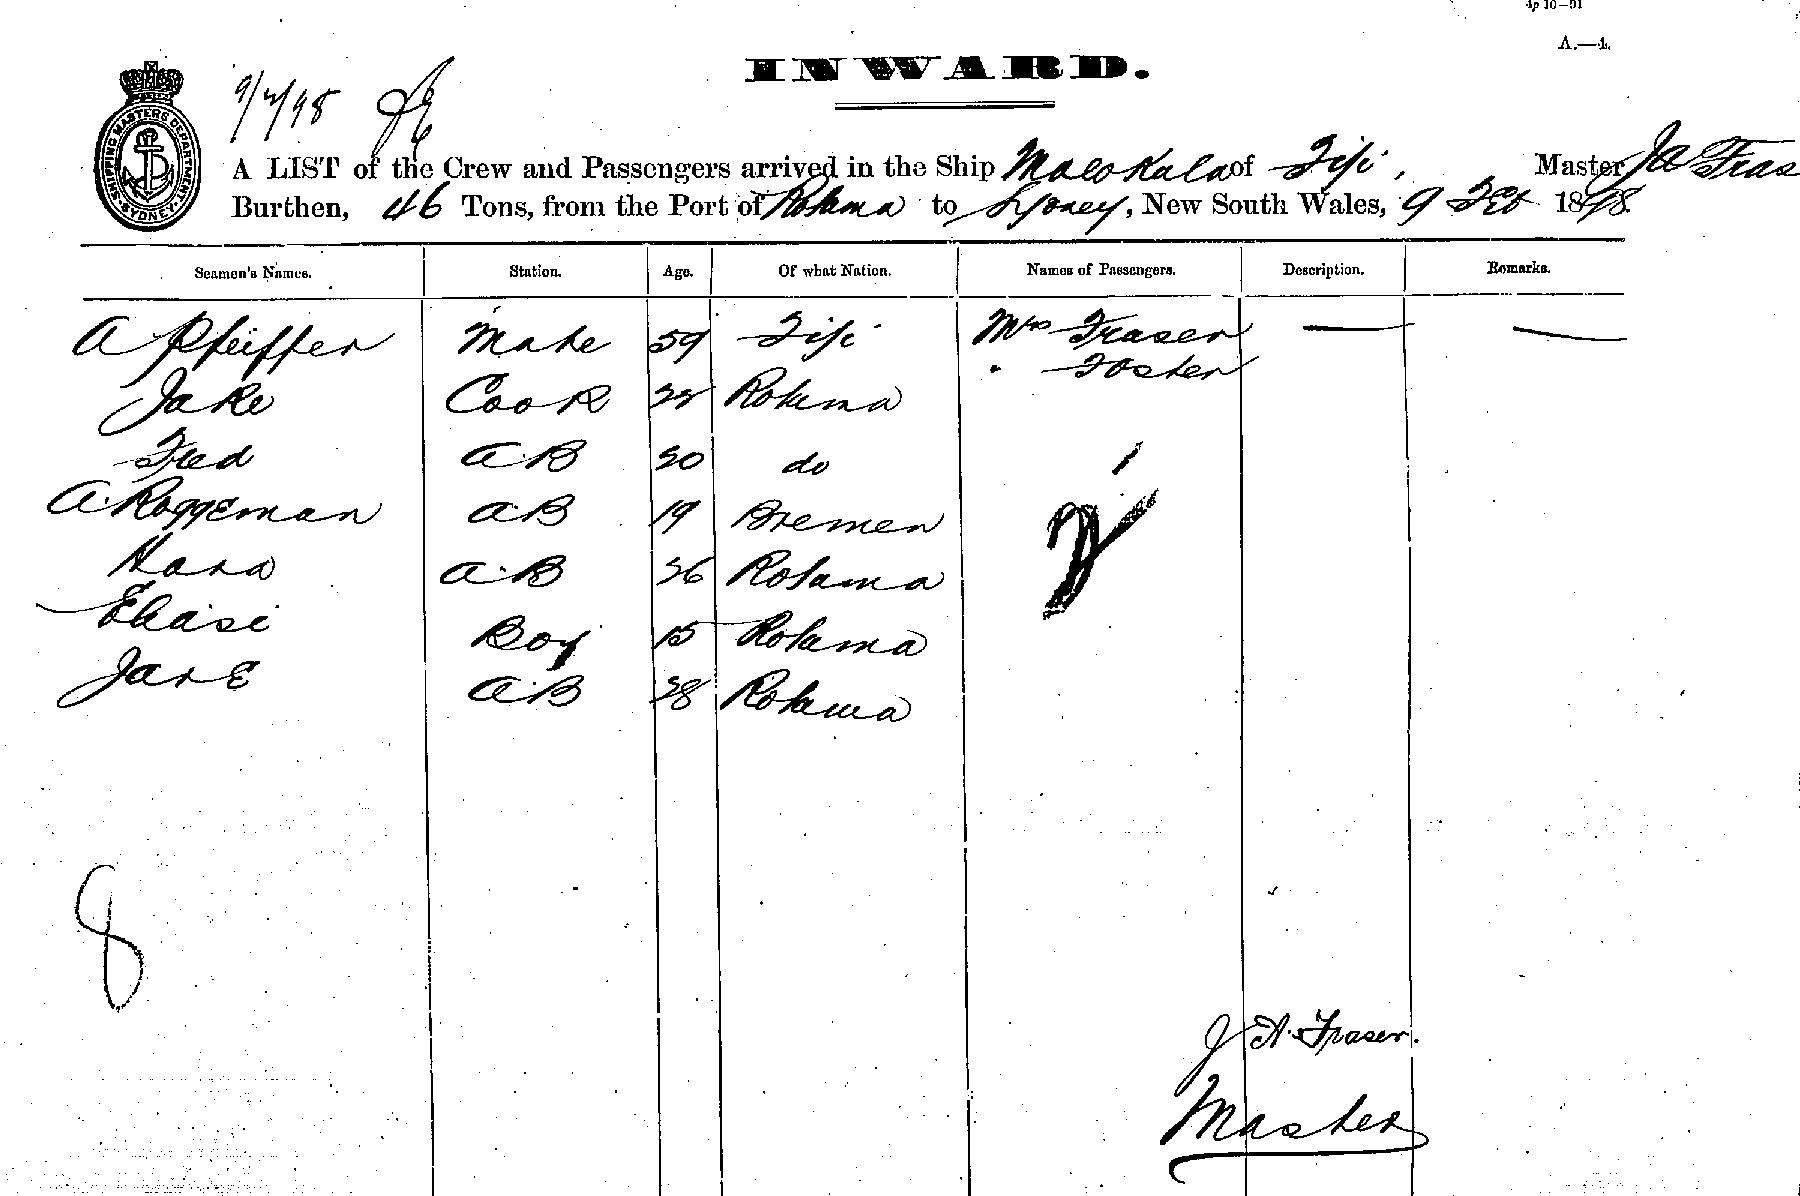 4p 10—91
A.—4.
INWARD.
SHIPPING MASTERS DEPARTMENT SYDNEY
9/2/98
A LIST of the Crew and Passengers arrived in the Ship Malokula of Fiji, Master J A Fras
Burthen, 46 Tons, from the Port of Rotuma to Sydney, New South Wales, 9 Feb 1898.
Seamen's Names. Station. Age. Of what Nation. Names of Passengers. Description. Remarks.
A Pfeiffer Mate 59 Fiji Mrs Fraser — —
" Foster
Jake Cook Rotuma
Fred A.B 20 do
A. Roggeman A.B 19 Bremen
A.B 26 Rotuma
2
Boy 15 Rotuma
A.B 28 Rotuma
8
J A. Fraser.
Master